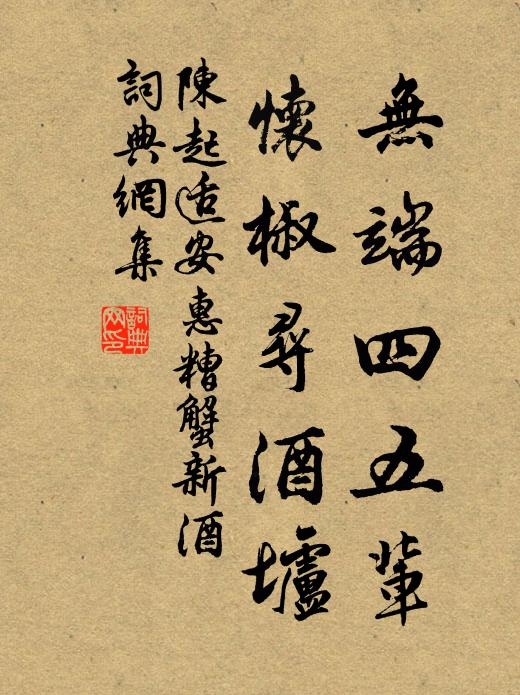 無端四五輩
懷椒尋酒壚
陳起适安惠糟蟹新酒
詞典網集
詞典网印